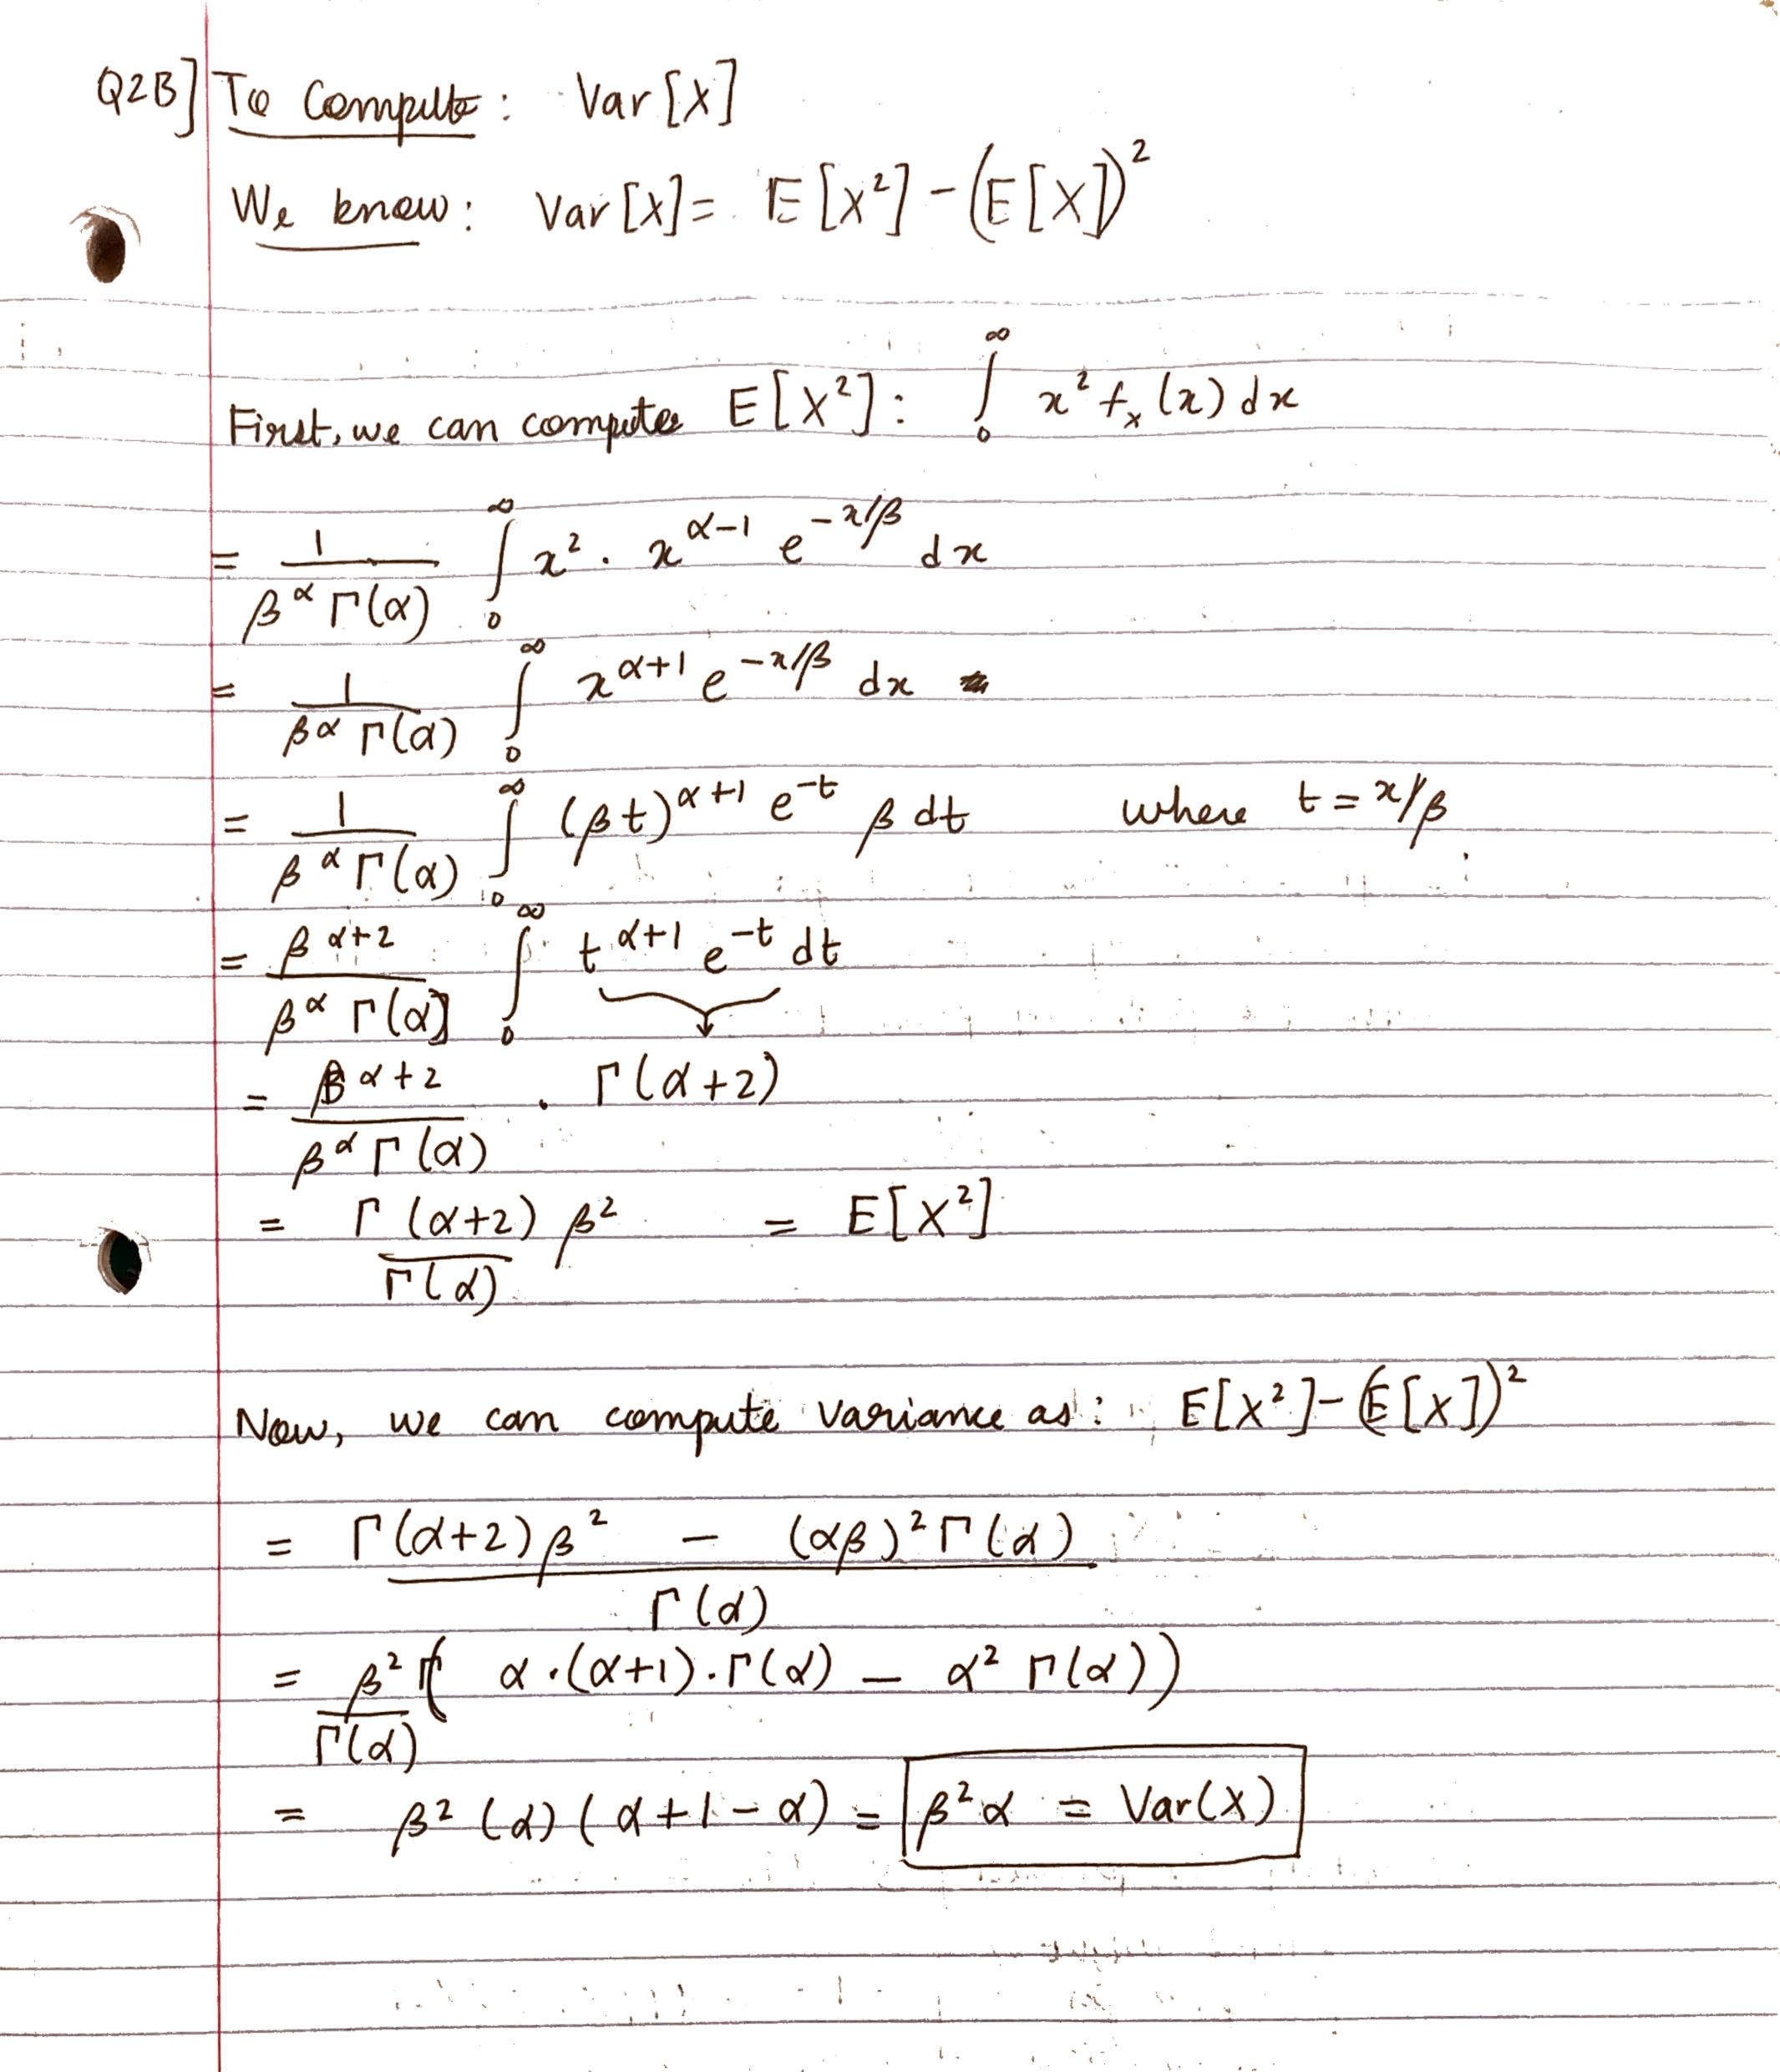 Q2B] To Compute: Var[X]
We know: Var[X] = E[X²] - (E[X])²
First, we can compute E[X²]: ∫₀^∞ x² fₓ(x) dx
= 1/(β^α Γ(α)) ∫₀^∞ x² · x^(α-1) e^(-x/β) dx
= 1/(β^α Γ(α)) ∫₀^∞ x^(α+1) e^(-x/β) dx
= 1/(β^α Γ(α)) ∫₀^∞ (βt)^(α+1) e^(-t) β dt where t = x/β
= β^(α+2)/(β^α Γ(α)) ∫₀^∞ t^(α+1) e^(-t) dt
= β^(α+2)/(β^α Γ(α)) · Γ(α+2)
= Γ(α+2) β²/Γ(α) = E[X²]
Now, we can compute variance as: E[X²] - (E[X])²
= (Γ(α+2) β² - (αβ)² Γ(α))/Γ(α)
= β²/Γ(α) (α·(α+1)·Γ(α) - α² Γ(α))
= β² (α) (α+1-α) = β²α = Var(X)